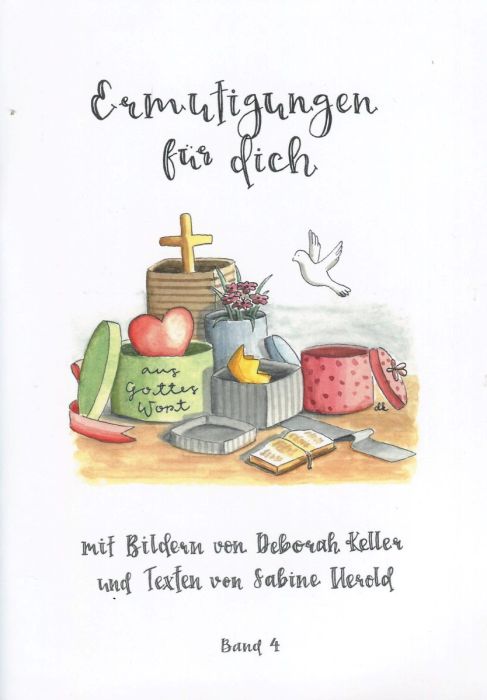 Ermutigungen
für dich
aus
Gottes
Wort
dk
mit Bildern von Deborah Keller
und Texten von Sabine Herold
Band 4